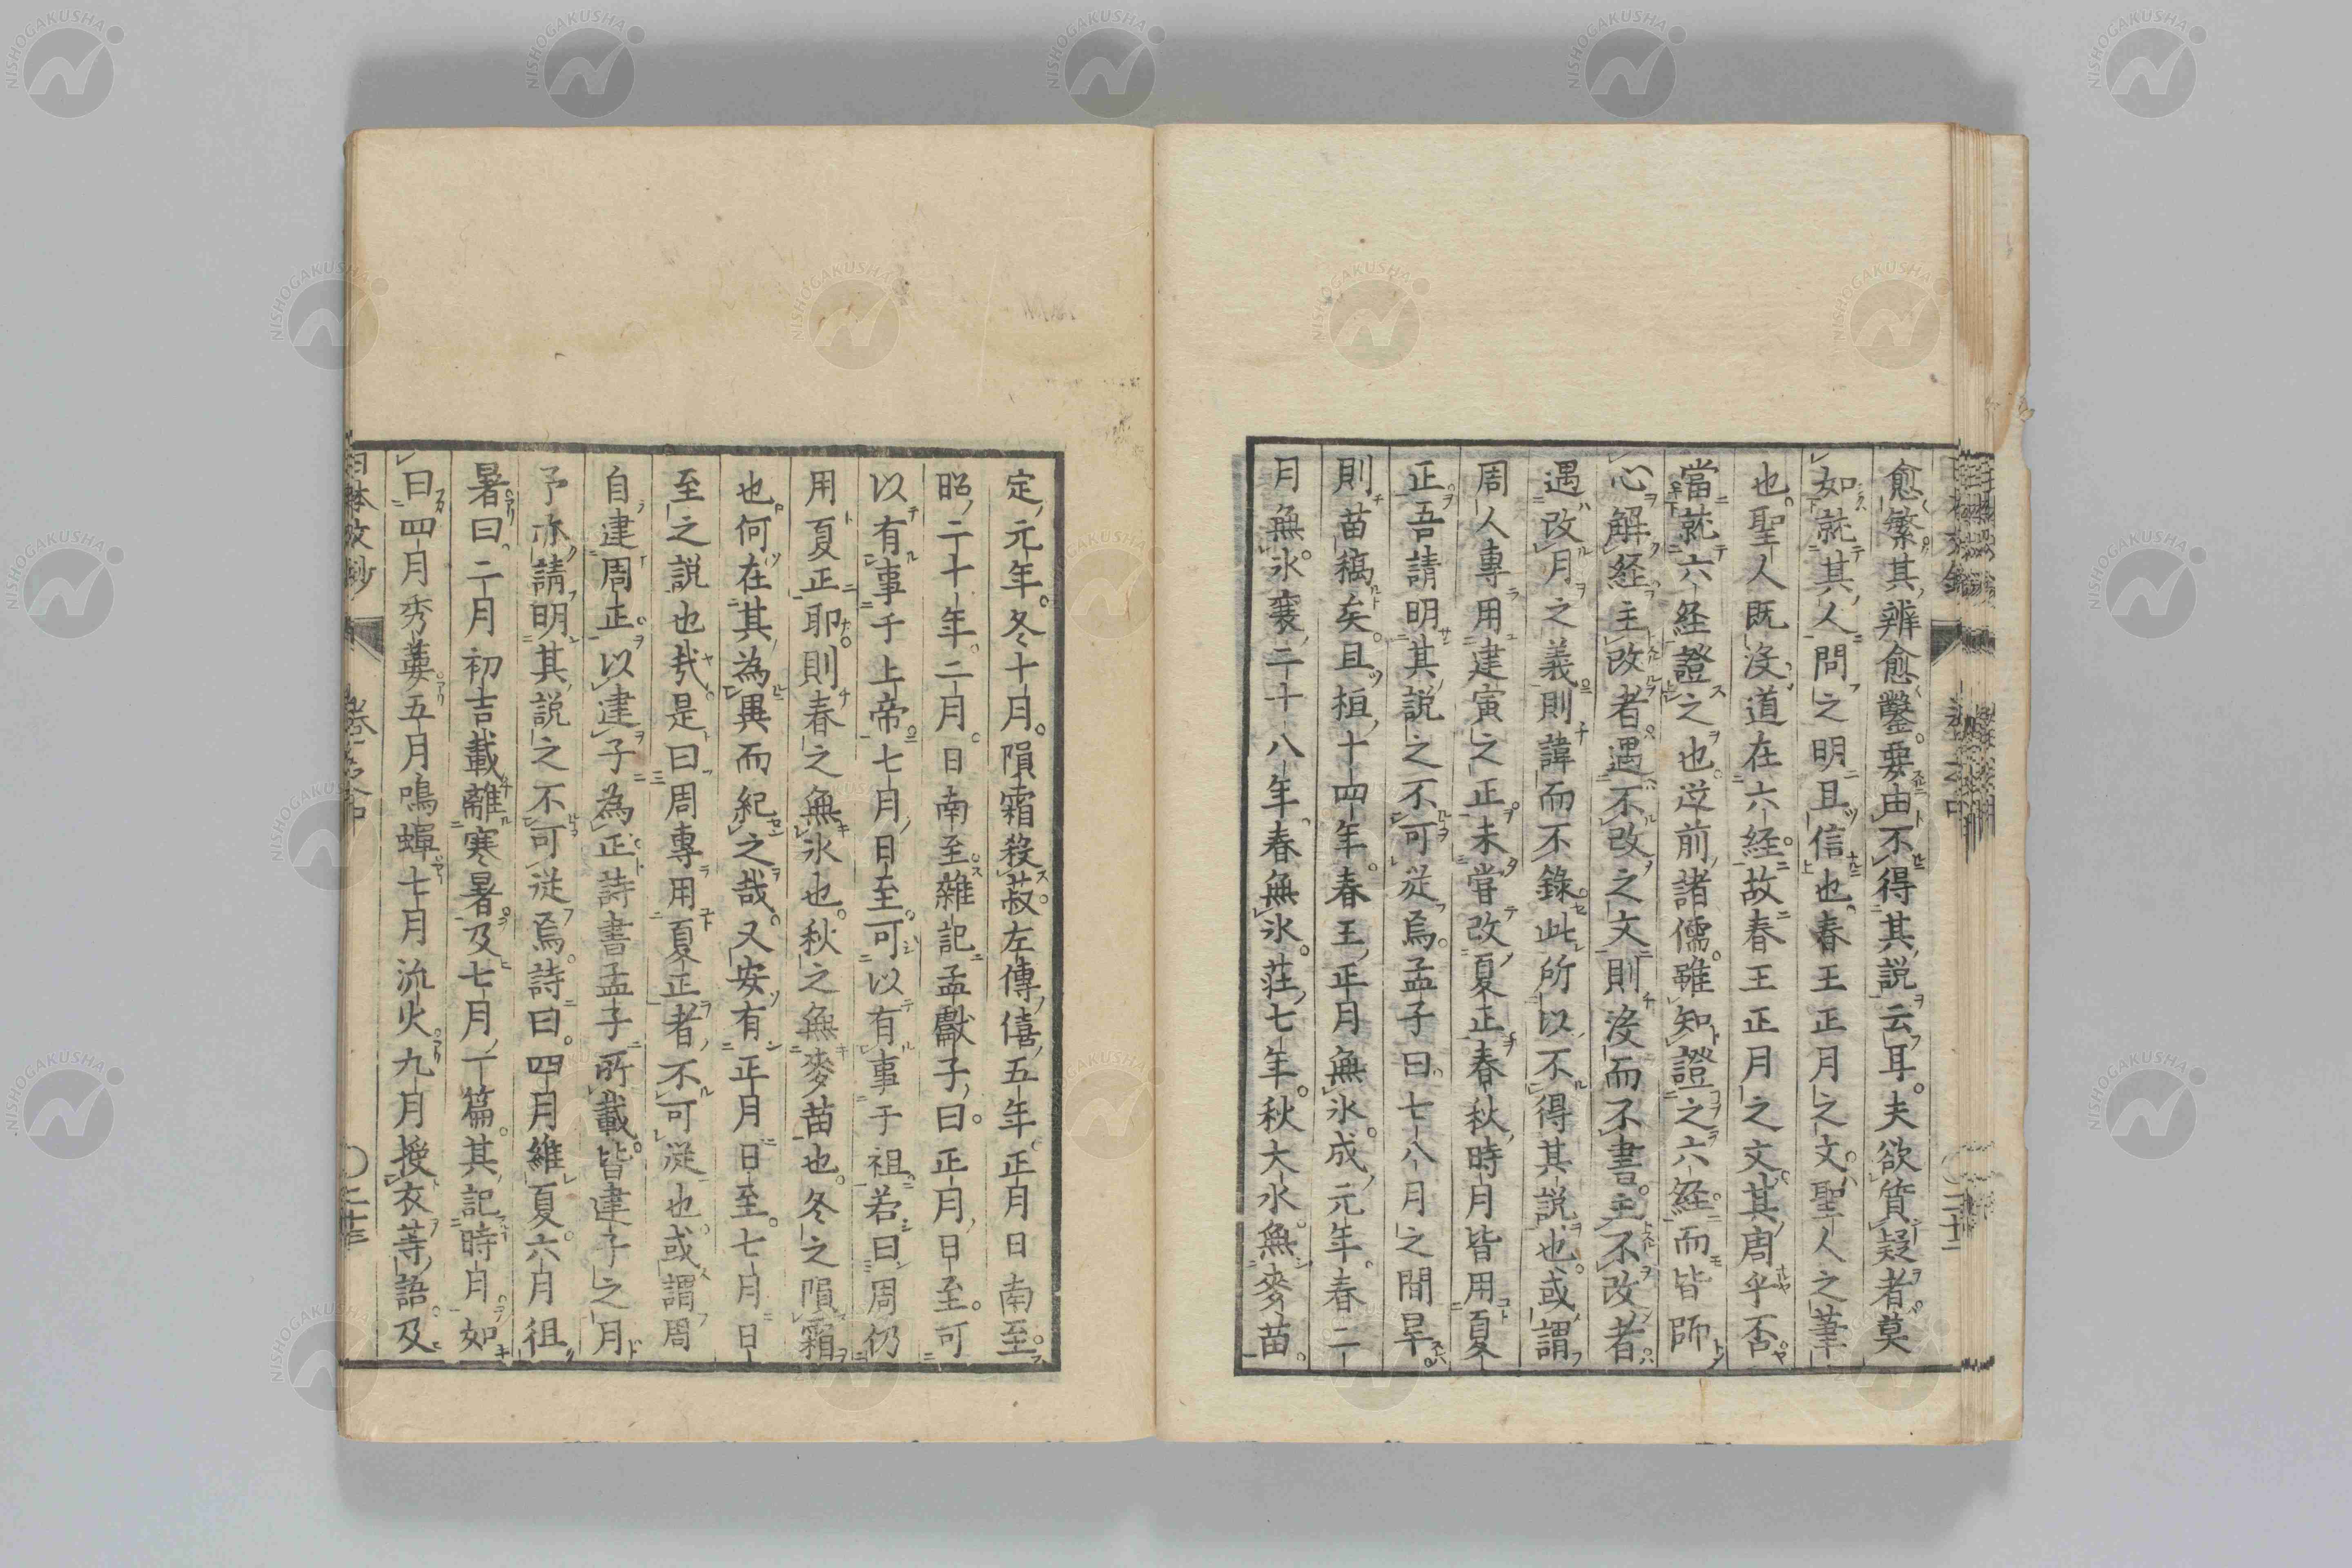 愈繁其辨愈鑿要由不得其説云耳夫欲質疑者莫
如就其人問之明且信也春王正月之文聖人之筆
也聖人既沒道在六経故春王正月之文其周乎否
當就六経證之也從前諸儒雖知證之六経而皆師
心解経主改者遇不改之文則沒而不書主不改者
遇改月之義則諱而不錄此所以不得其説也或謂
周人專用建寅之正未嘗改夏正春秋時月皆用夏
正吾請明其説之不可從焉孟子曰七八月之間旱
則苗稿矣且桓十四年春王正月無氷成元年春二
月無氷襄二十八年春無氷荘七年秋大水無麥苗
定元年冬十月隕霜殺菽左傳僖五年正月日南至
昭二十年二月日南至雜記孟獻子曰正月日至可
以有事于上帝七月日至可以有事于祖若曰周仍
用夏正耶則春之無氷也秋之無麥苗也冬之隕霜
也何在其為異而紀之哉又安有正月日至七月日
至之説也㢤是曰周專用夏正者不可從也或謂周
自建周正以建子為正詩書孟子所載皆建子之月
予亦請明其説之不可從焉詩曰四月維夏六月徂
暑曰二月初吉載離寒暑及七月一篇其記時月如
曰四月秀葽五月鳴蟬七月流火九月授衣等語及
巻之中
〇二十三